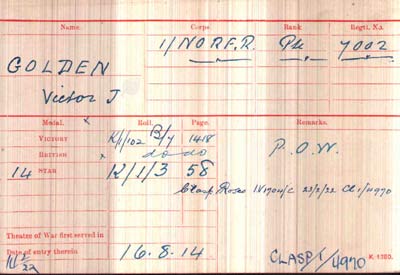 Name. Corps. Rank Regtl. No.
1/NORF.R. Pte 7002
GOLDEN
Victor J
Medal. Roll. Page. Remarks.
VICTORY K/1/102 B/7 1418
BRITISH do do P.O.W.
14 STAR K/1/3 58
Clasp Roses 23/2/22 Cl 1/4970
Theatre of War first served in
Date of entry therein 16.8.14
CLASP 1/4970 K. 1380.